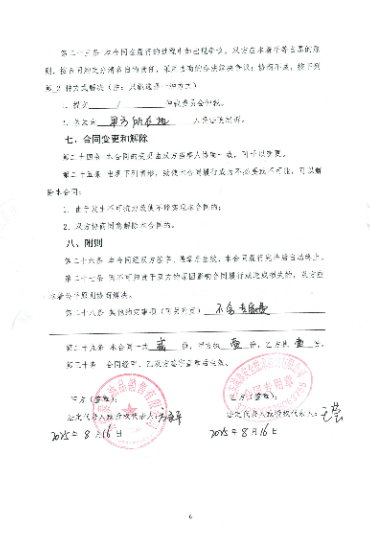 第二十三条 本合同在履行的过程中如出现争议,双方应本着平等互惠的原
则,按合同约定分清各自的责任,采取适当的办法解决争议;协商不成,按下列
第 2 种方式解决(注:只能选择一种方式)
1、提交 / 仲裁委员会仲裁。
2、依法向 甲方所在地 人民法院起诉。
七、合同变更和解除
第二十四条 本合同的变更由双方当事人协商一致,可予以变更。
第二十五条 出现下列情形,致使本合同履行成为不必要或不可能,可以解
除本合同:
1、由于发生不可抗力致使不能实现本合同的;
2、双方协商同意解除本合同的。
八、附则
第二十六条 本合同经双方签字、盖章后生效,本合同履行完毕后自动终止。
第二十七条 因不可归责于双方的原因影响合同履行或造成损失的,双方应
本着公平原则协商解决。
第二十八条 其他约定事项(可另附页)
第二十九条 本合同一式 份,甲方执 壹 份,乙方执 壹 份。
第三十条 合同经甲、乙双方签字盖章后生效。
甲方(盖章): 乙方(盖章):
法定代表人或授权代表人: 法定代表人或授权代表人:
2025年8月16日 2025年8月16日
6